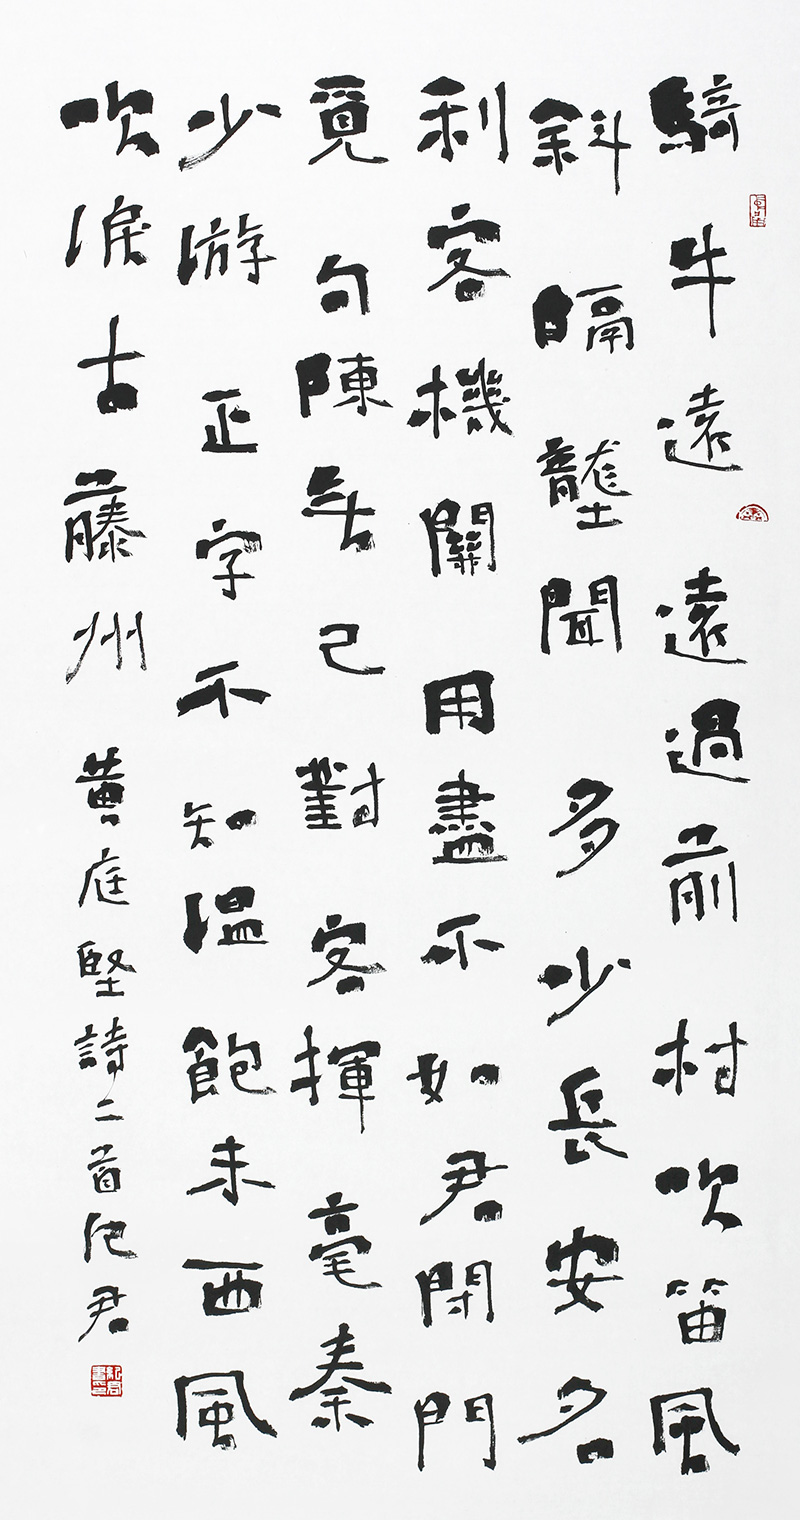 騎牛遠遠過前村吹笛風
斜隔壟聞多少長安名
利客機關用盡不如君閉門
覓句陳無己對客揮毫秦
少游正字不知溫飽未西風
吹淚古藤州 黃庭堅詩二首 君